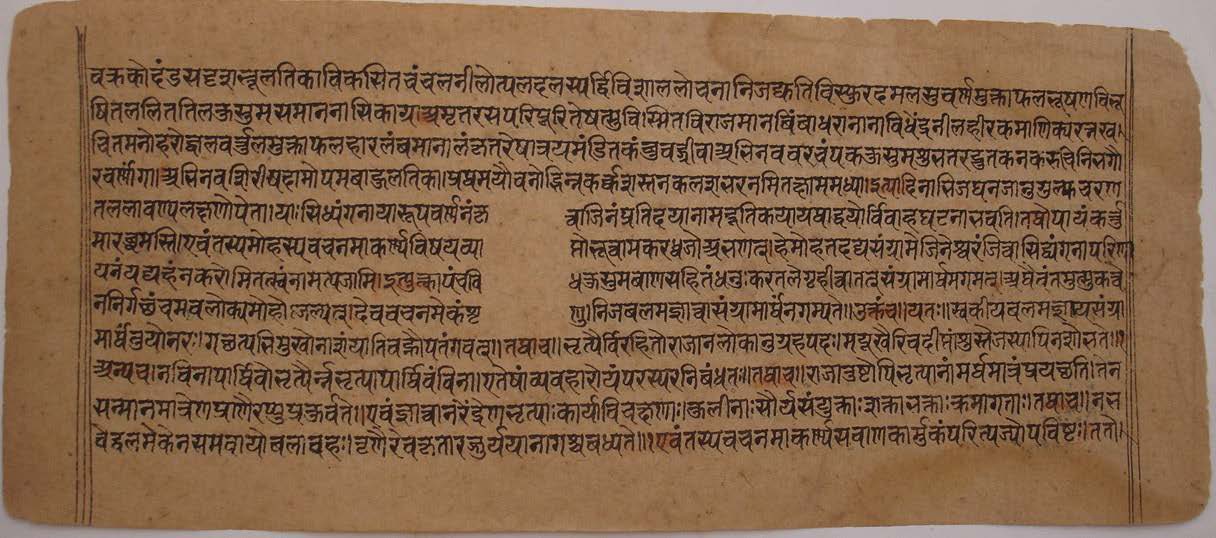 वक्रकोदंडसदृशभ्रूलतिका विकसितचंचलनीलोत्पलदलस्पर्द्धिविशाललोचना निजद्युतिविस्फुरदमलसुवर्णमुक्ताफलभूषणविभू
षितललिततिलकुसुमसमाननासिकाग्रा अमृतरसपरिपूरितेषत्सुविस्मितविराजमानबिंबाधरा नानाविधेंद्रनीलहीरकमाणिक्यरत्नख
चितमनोहरोज्वलवर्त्तुलमुक्ताफलहारलंबमानालंकृतरेषात्रयमंडितकंबुवद्ग्रीवा अभिनववरचंपककुसुमशुभतरद्रुतकनकरुचिनिभगौ
रवर्णांगा। अभिनवशिरीषदामोपमबाहुलतिका। प्रथमयौवनोद्भिन्नकर्कशस्तनकलशभरनमितक्षाममध्या। इत्यादिनाभिजघनजानुगुल्फचरण
तललावण्यलक्षणोपेता। याः सिध्यंगनाया रूपवर्णनं कृ त्वा जिनं प्रति दयानामद्भूतिकया यथाद्वयोर्विवाहघटना भवति। तथोपायं कर्त्तु
मारब्धमस्ति। एवं तस्य मोहस्य वचनमाकर्ण्य विषयव्या प्तो भूत्वा मकरध्वजो अभणत्। हे मोह तदद्य संग्रामे जिनेश्वरं जित्वा सिद्ध्यंगनापरिण
यनं यद्यहं न करोमि तत्स्वं नामत्यजामि। इत्युक्त्वा पंचवि धकुसुमबाणसहितं धनुः करतले गृहीत्वा तत्संग्रामार्थमगमत्। अथैवं तमुत्सुकत्वे
न निर्गच्छंतमवलोक्य मोहोऽजल्पत्। देव वचनमेकं शृ णु। निजबलमज्ञात्वा संग्रामार्थं न गम्यते। उक्तं च। यतः॥ स्वकीयबलमज्ञाय संग्रा
मार्थं तु यो नरः। गच्छत्यभिमुखो नाशं याति वह्नौ पतंगवत्॥ तथा च॥ भृत्यैर्विरहितो राजा न लोकानुग्रहप्रदः। मयूखैरिव दीप्तांशुस्तेजस्व्यपि न शोभते॥१
अन्यच्च। न विना पार्थिवो भृत्यैर्न भृत्याः पार्थिवं विना। एतेषां व्यवहारोयं परस्परनिबंधतः॥ तथा च॥ राजा तुष्टोपि भृत्यानां मर्थमात्रं प्रयच्छति। तेन
सन्मानमात्रेण प्राणैरप्युप्रकुर्वते॥ एवं ज्ञात्वा नरेंद्रेण भृत्याः कार्या विचक्षणाः। कुलीनाः सौर्यसंयुक्ताः शक्ता भक्ताः क्रमागताः॥ तथा च॥ न भ
वेद्बलमेकेन समवायो बलावहः। तृणैरेव कृता रज्जुर्यया नागश्च बध्यते॥१ एवं तस्य वचनमाकर्ण्य सबाणकार्मुकं परित्यज्योपविष्टः। ततो।